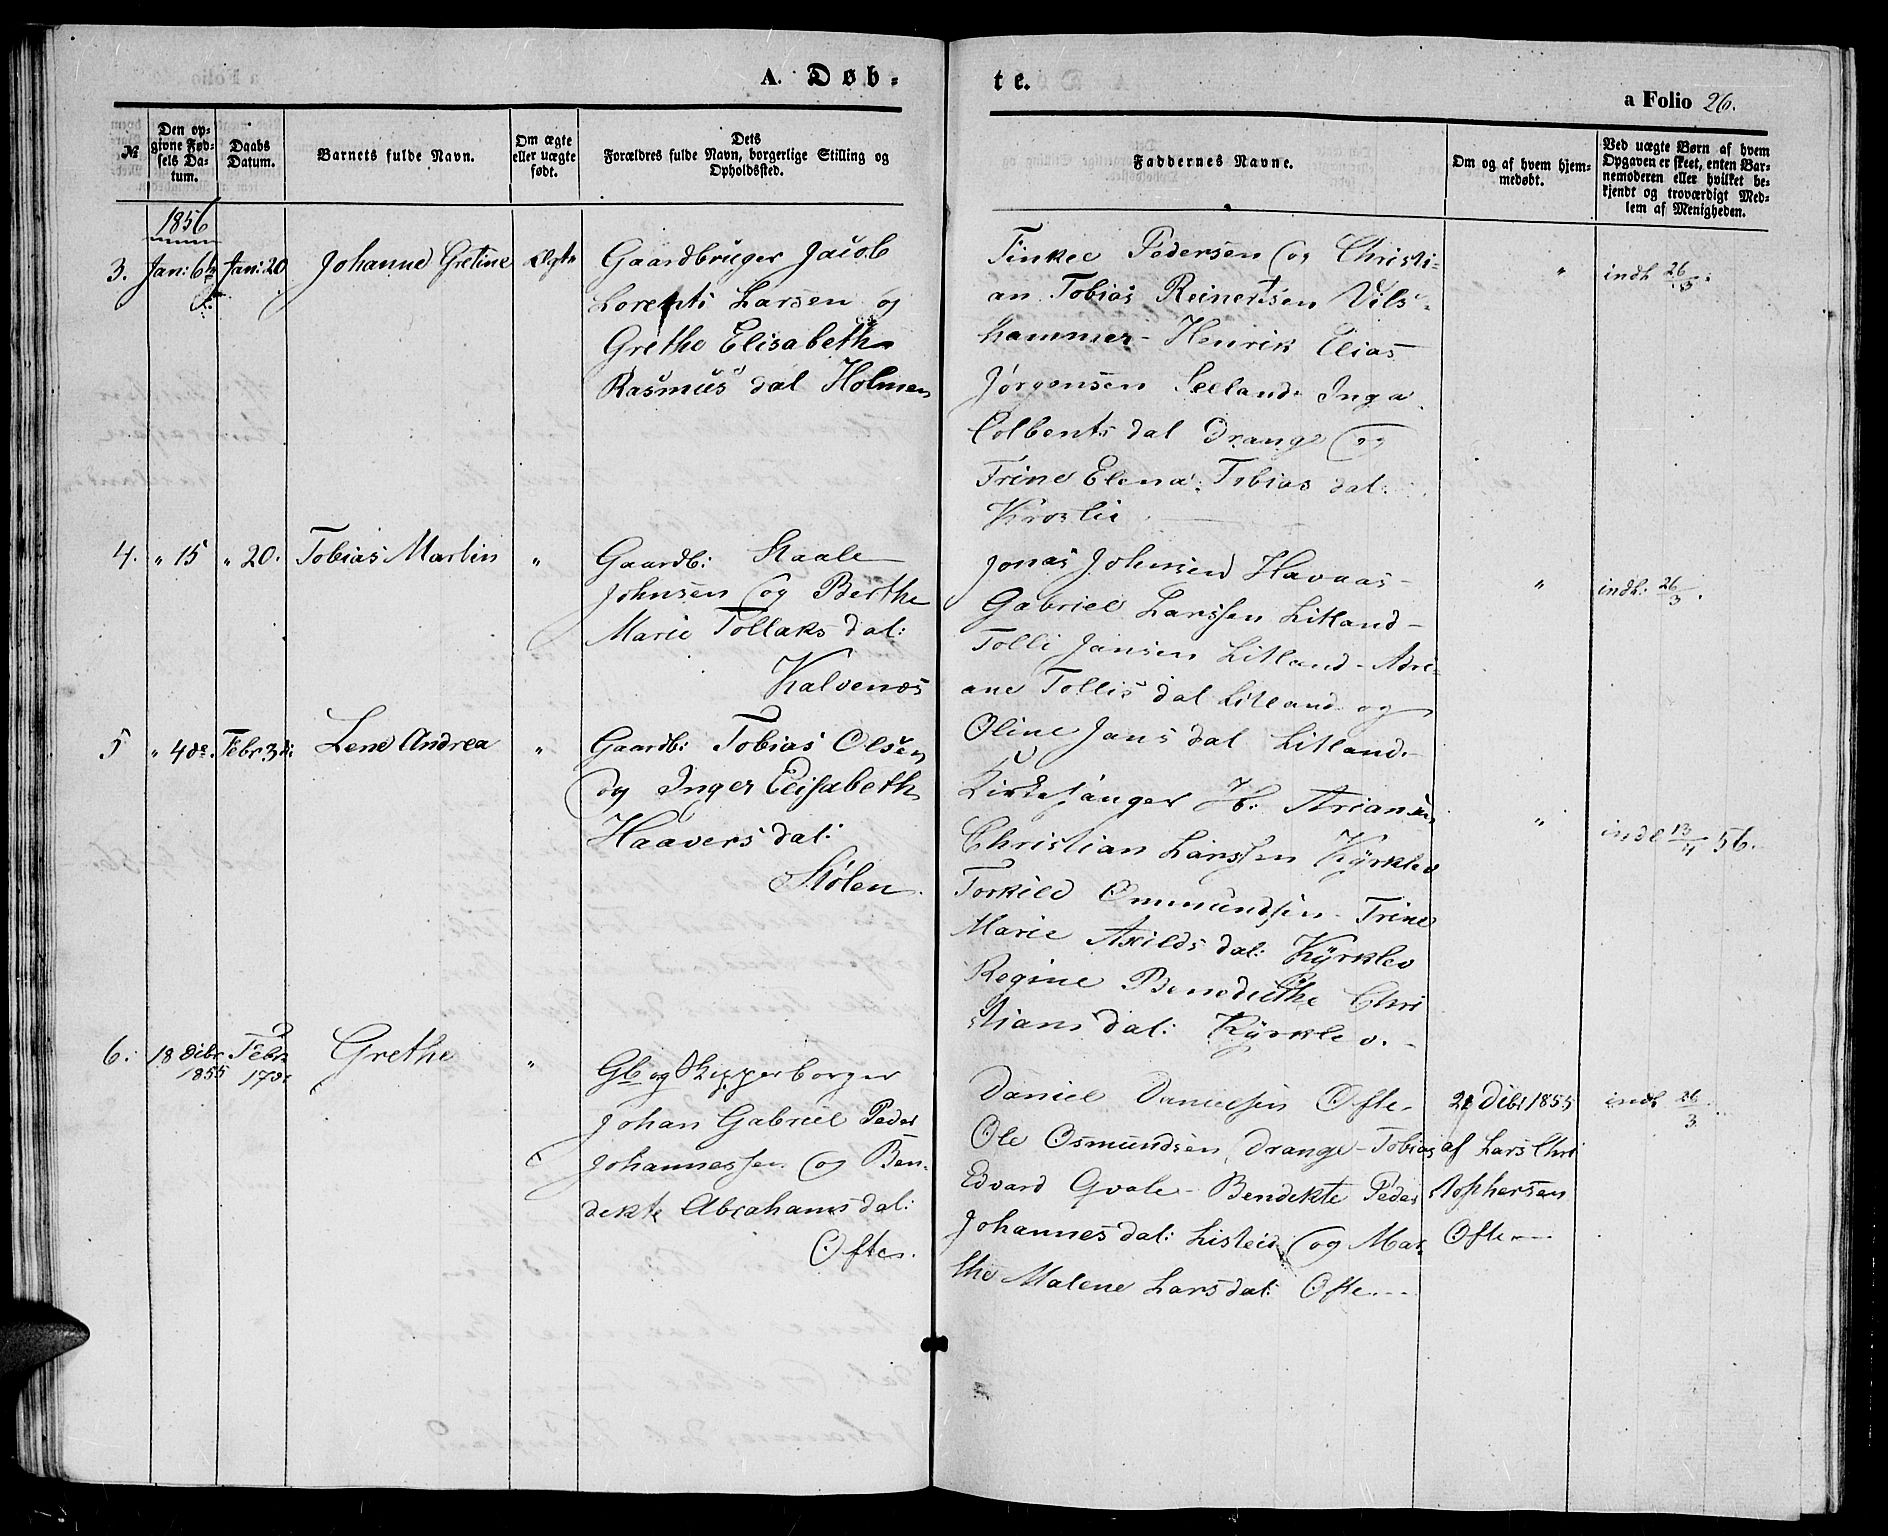 A. Døb-
te.
a Folio 26.
№
Den op-
givne Fød-
sels Da-
tum.
Daabs
Datum.
Barnets fulde Navn.
Om ægte
eller uægte
født.
Dets
Forældres fulde Navn, borgerlige Stilling og
Opholdssted.
Faddernes Navne.
Om og af hvem hjem-
medøbt.
Ved uægte Børn af hvem
Opgaven er skeet, enten Bar-
nemoderen eller hvilket be-
kjendt og troværdigt Med-
lem af Menigheden.
1856
3. Jan: 6 Jan: 20 Johanne Gretine Ægte
Gaardbruger Jacob
Lorents Larsen og
Grethe Elisabeth
Rasmus dal Holmen
Pedersen og Christi-
an Tobias Reinertsen Vils-
hammer - Henrik Elias
Jørgensen Seeland Inga
Colbents dal Drange og
Trine Elena Tobias dal:
"
indl 26/3.
4. " 15 " 20. Tobias Martin "
Gaardb: Staale
Johnsen og Berthe
Marie Tollaks dal:
Kalvenæs
Jonas Johnsen Havaas -
Gabriel Larssen Litland -
Tolli Jansen Litland - Adri-
ane Tollis dal Litland og
Oline Jans dal Litland. -
"
indl: 26/3.
5 " 4de. Febr 3d: Lene Andrea "
Gaardb: Tobias Olsen
og Inger Elisabeth
Haavers dal:
Stølen.
Kirkesanger H. Ariansen
Christian Larssen Kÿrklev
Torkild Ommundsen - Trine
Marie Axilds dal: Kÿrklev
Regine Benedicthe Chri
stians dal: Kÿrklev. -
"
indl 13/4 56.
6. 18 Decbr 1855 Febr 17de Grethe "
Gb og Skipperborger
Johan Gabriel Peder
Johannessen og Ben-
dekte Abrahams dal:
Ofte.
Daniel Danielsen Ofte -
Ole Osmundsen Drange - Tobias
Edvard Gvale - Bendekte Peder
Johannes dal: Listeid og Mar-
the Malene Lars dal: Ofte. --
21 Decbr 1855
af Lars Chri
stophersen
Ofte --
indl 26/3